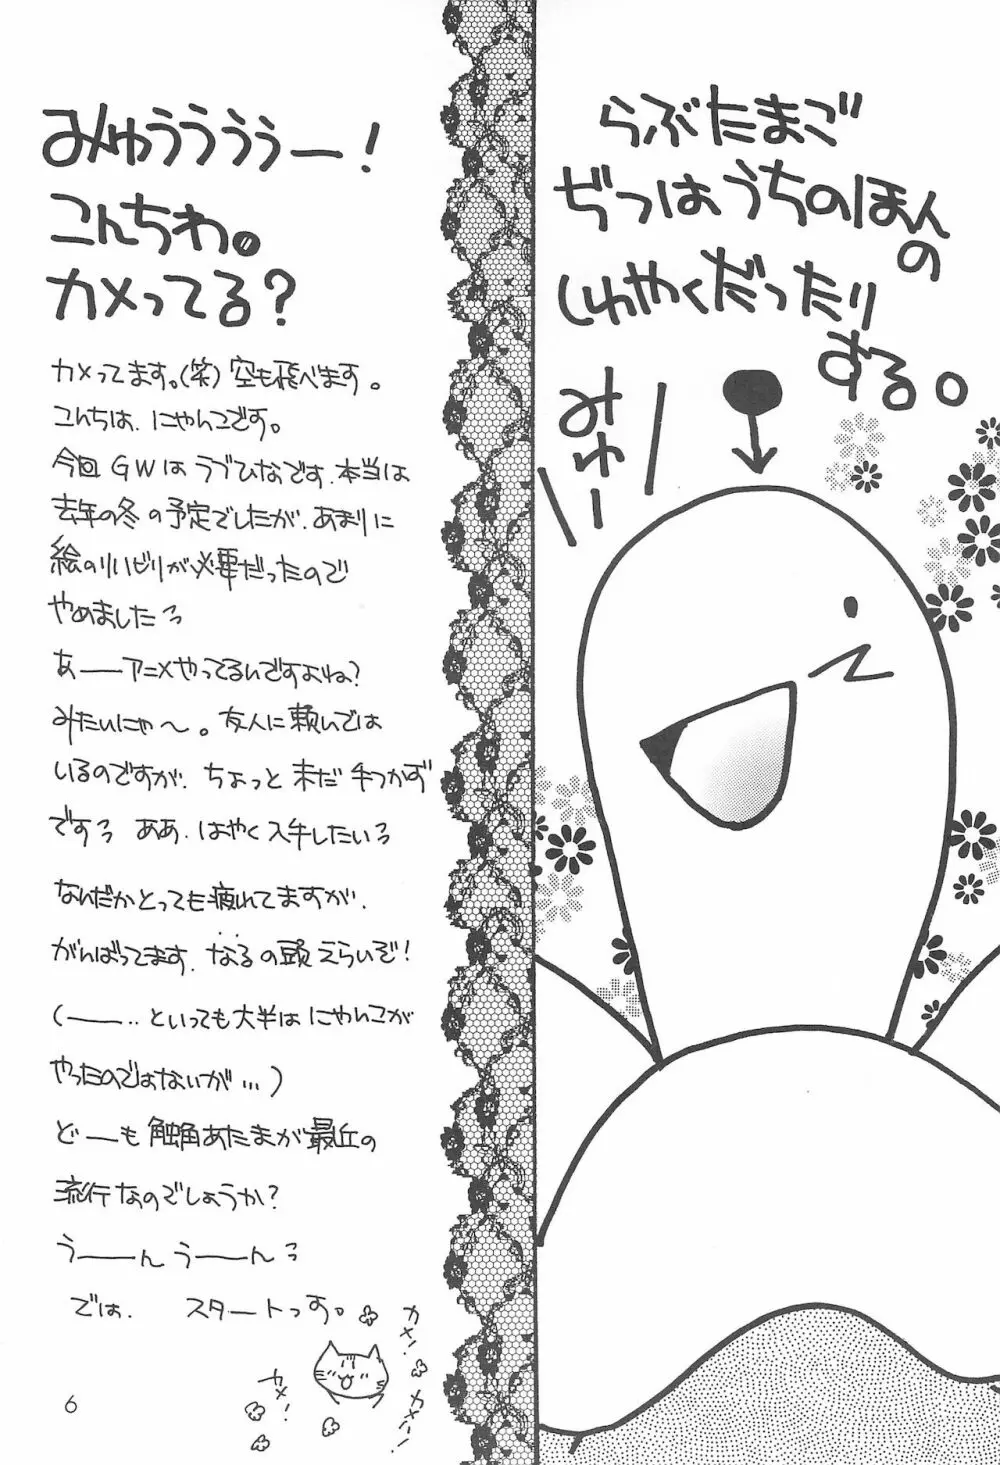 らぶたまご
ぢつはうちのほんの
しゅやくだったり
する。
みゅー
みゅぅぅぅぅー!
こんちわ。
カメってる?
カメってます。(笑)空も飛べます。
こんちは、にゃんこです。
今回GWはラブひなです。本当は
去年の冬の予定でしたが、あまりに
絵のリハビリが必要だったので
やめましたっ
あーアニメやってるんですよね?
みたいにゃ〜。友人に頼んでは
いるのですが、ちょっと未だ手つかず
ですっ ああ、はやく入手したいっ
なんだかとっても疲れてますが、
がんばってます、なるの頭えらいぞ!
(ー…といっても大半はにゃんこが
やったのではないが…)
どーも触角あたまが最近の
流行なのでしょうか?
うーんうーんっ
では、 スタートっす。
カメ!
カメ!
カメー!
6